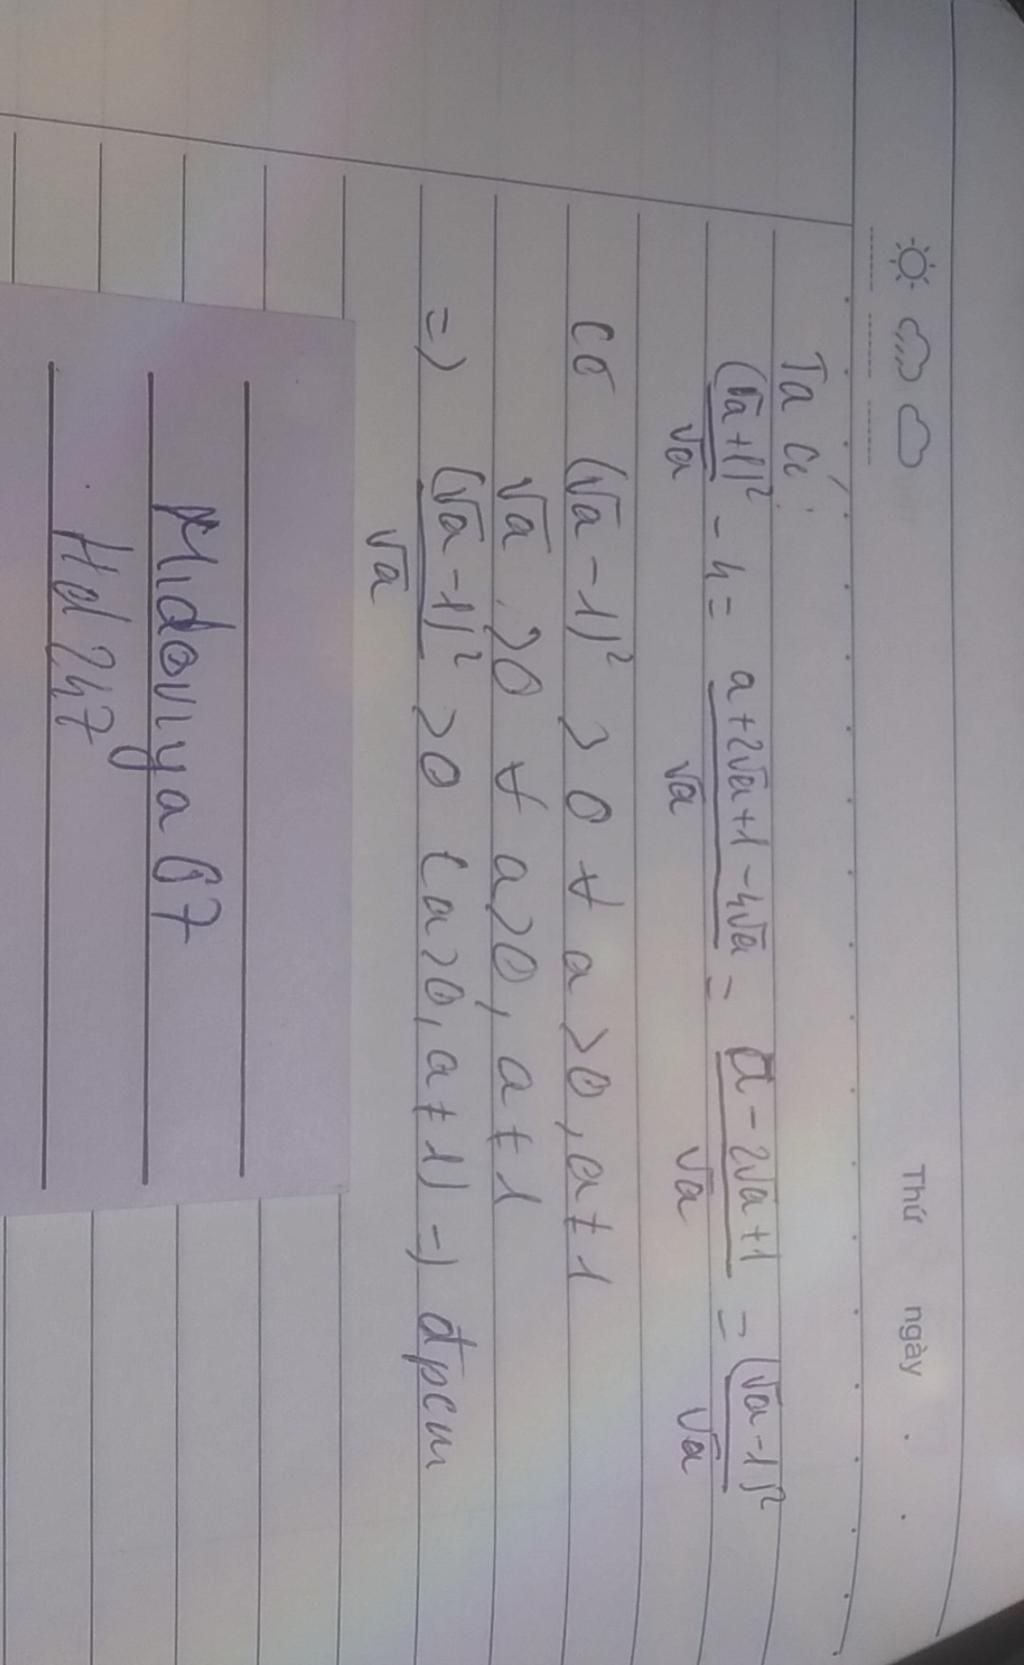 Thứ ngày
Ta có:
(√a+1)²/√a - 4 = (a+2√a+1-4√a)/√a = (a-2√a+1)/√a = (√a-1)²/√a
có (√a-1)² > 0 ∀ a>0, a≠1
√a >0 ∀ a>0, a≠1
=> (√a-1)²/√a >0 (a>0, a≠1) -) đpcm
Midoriya67
Hd247